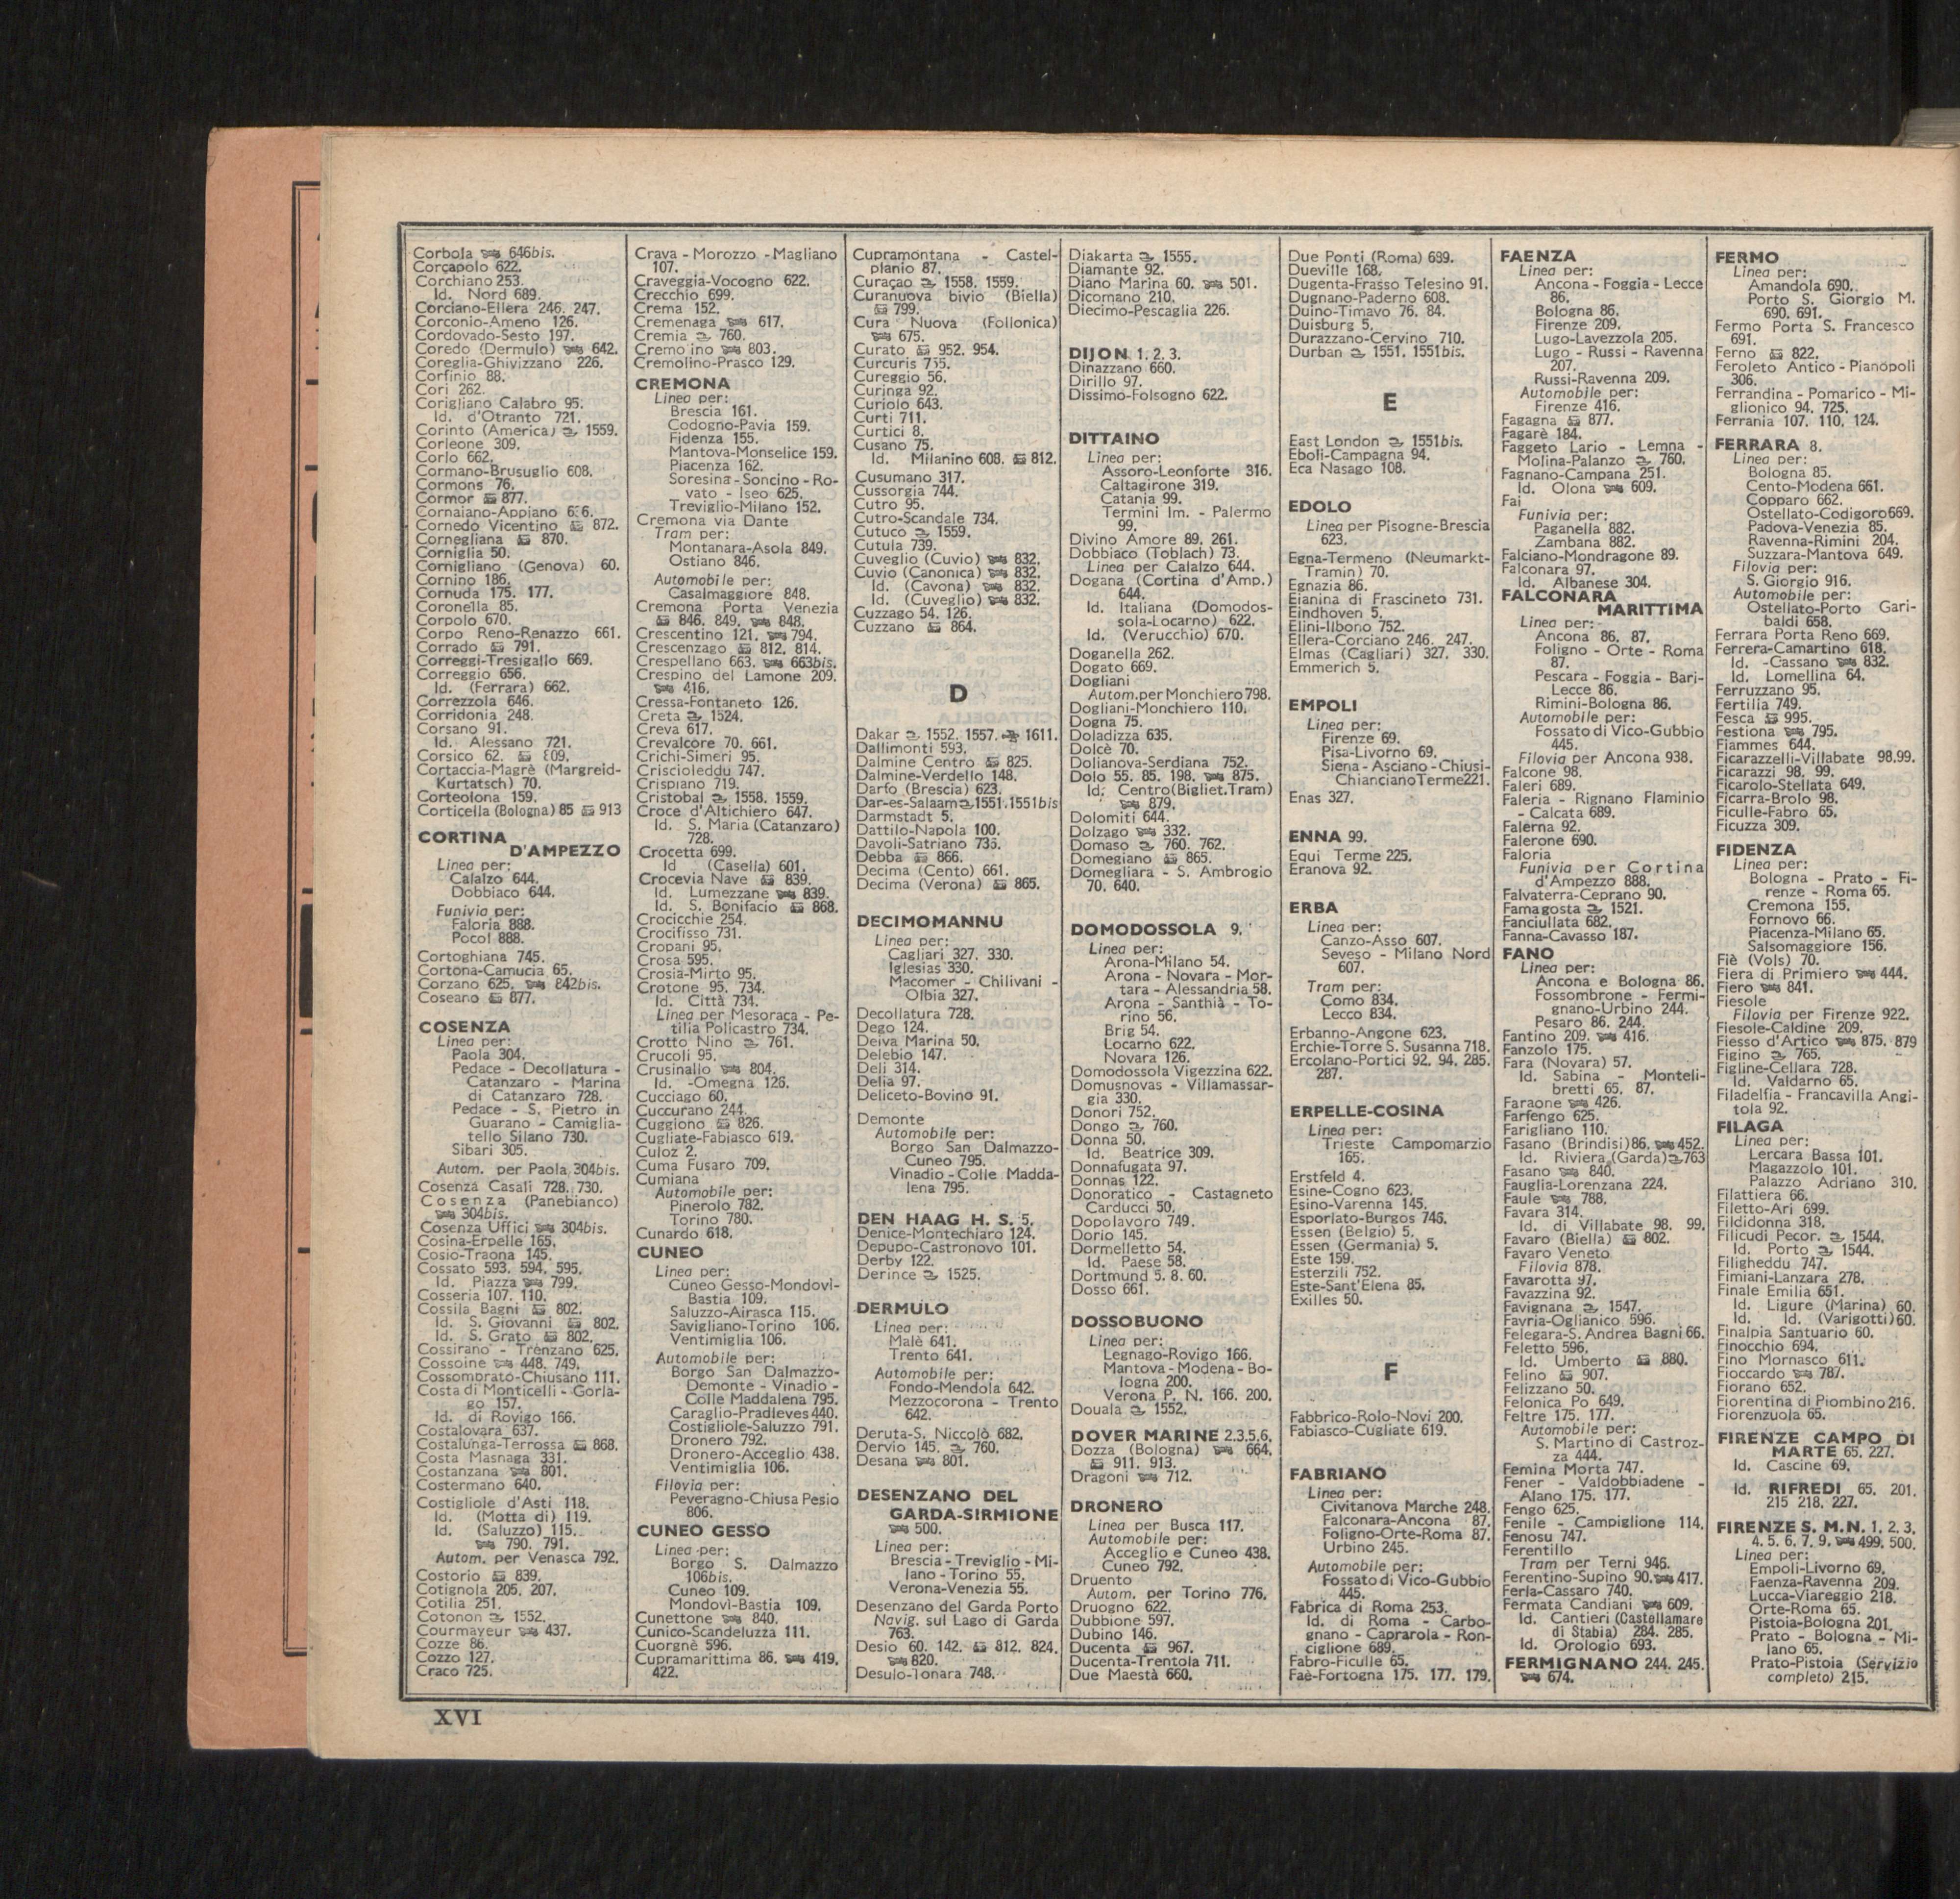 Corbola 646bis.
Corçapolo 622.
Corchiano 253.
Id. Nord 689.
Corciano-Ellera 246. 247.
Corconio-Ameno 126.
Cordovado-Sesto 197.
Coredo (Dermulo) 642.
Coreglia-Ghivizzano 226.
Corfinio 88.
Cori 262.
Corigliano Calabro 95.
Id. d'Otranto 721.
Corinto (America) 1559.
Corleone 309.
Corlo 662.
Cormano-Brusuglio 608.
Cormons 76.
Cormor 877.
Cornaiano-Appiano
Cornedo Vicentino 872.
Cornegliana 870.
Corniglia 50.
Cornigliano (Genova) 60.
Cornino 186.
Cornuda 175. 177.
Coronella 85.
Corpolo 670.
Corpo Reno-Renazzo 661.
Corrado 791.
Correggi-Tresigallo 669.
Correggio 656.
Id. (Ferrara) 662.
Correzzola 646.
Corridonia 248.
Corsano 91.
Id. Alessano 721.
Corsico 62. 809.
Cortaccia-Magrè (Margreid-
Kurtatsch) 70.
Corteolona 159.
Corticella (Bologna) 85 913
CORTINA
D'AMPEZZO
Linea per:
Calalzo 644.
Dobbiaco 644.
Funivia per:
Faloria 888.
Pocol 888.
Cortoghiana 745.
Cortona-Camucia 65.
Corzano 625. 842bis.
Coseano 877.
COSENZA
Linea per:
Paola 304.
Pedace - Decollatura -
Catanzaro - Marina
di Catanzaro 728.
Pedace - S. Pietro in
Guarano - Camiglia-
tello Silano 730.
Sibari 305.
Autom. per Paola 304bis.
Cosenza Casali 728. 730.
Cosenza (Panebianco)
304bis.
Cosenza Uffici 304bis.
Cosina-Erpelle 165.
Cosio-Traona 145.
Cossato 593. 594. 595.
Id. Piazza 799.
Cosseria 107. 110.
Cossila Bagni 802.
Id. S. Giovanni 802.
Id. S. Grato 802.
Cossirano - Trenzano 625.
Cossoine 448. 749.
Cossombrato-Chiusano 111.
Costa di Monticelli - Gorla-
go 157.
Id. di Rovigo 166.
Costalovara 637.
Costalunga-Terrossa 868.
Costa Masnaga 331.
Costanzana 801.
Costermano 640.
Costigliole d'Asti 118.
Id. (Motta di) 119.
Id. (Saluzzo) 115.
790. 791.
Autom. per Venasca 792.
Costorio 839.
Cotignola 205. 207.
Cotilia 251.
Cotonon 1552.
Courmayeur 437.
Cozze 86.
Cozzo 127.
Craco 725.
Crava - Morozzo - Magliano
107.
Craveggia-Vocogno 622.
Crecchio 699.
Crema 152.
Cremenaga 617.
Cremia 760.
Cremolino 803.
Cremolino-Prasco 129.
CREMONA
Linea per:
Brescia 161.
Codogno-Pavia 159.
Fidenza 155.
Mantova-Monselice 159.
Piacenza 162.
Soresina - Soncino - Ro-
vato - Iseo 625.
Treviglio-Milano 152.
Cremona via Dante
Tram per:
Montanara-Asola 849.
Ostiano 846.
Automobile per:
Casalmaggiore 848.
Cremona Porta Venezia
846. 849. 848.
Crescentino 121. 794.
Crescenzago 812. 814.
Crespellano 663. 663bis.
Crespino del Lamone 209.
416.
Cressa-Fontaneto 126.
Creta 1524.
Creva 617.
Crevalcore 70. 661.
Crichi-Simeri 95.
Criscioleddu 747.
Crispiano 719.
Cristobal 1558. 1559.
Croce d'Altichiero 647.
Id. S. Maria (Catanzaro)
728.
Crocetta 699.
Id (Casella) 601.
Crocevia Nave 839.
Id. Lumezzane 839.
Id. S. Bonifacio 868.
Crocicchie 254.
Crocifisso 731.
Cropani 95.
Crosa 595.
Crosia-Mirto 95.
Crotone 95. 734.
Id. Città 734.
Linea per Mesoraca - Pe-
tilia Policastro 734.
Crotto Nino 761.
Crucoli 95.
Crusinallo 804.
Id. -Omegna 126.
Cucciago 60.
Cuccurano 244.
Cuggiono 826.
Cugliate-Fabiasco 619.
Culoz 2.
Cuma Fusaro 709.
Cumiana
Automobile per:
Pinerolo 782.
Torino 780.
Cunardo 618.
CUNEO
Linea per:
Cuneo Gesso-Mondovì-
Bastia 109.
Saluzzo-Airasca 115.
Savigliano-Torino 106.
Ventimiglia 106.
Automobile per:
Borgo San Dalmazzo-
Demonte - Vinadio -
Colle Maddalena 795.
Caraglio-Pradleves 440.
Costigliole-Saluzzo 791.
Dronero 792.
Dronero-Acceglio 438.
Ventimiglia 106.
Filovia per:
Peveragno-Chiusa Pesio
806.
CUNEO GESSO
Linea per:
Borgo S. Dalmazzo
106bis.
Cuneo 109.
Mondovì-Bastia 109.
Cunettone 840.
Cunico-Scandeluzza 111.
Cuorgnè 596.
Cupramarittima 86. 419.
422.
Cupramontana - Castel-
planio 87.
Curaçao 1558. 1559.
Curanuova bivio (Biella)
799.
Cura Nuova (Follonica)
675.
Curato 952. 954.
Curcuris 755.
Cureggio 56.
Curinga 92.
Curiolo 643.
Curti 711.
Curtici 8.
Cusano 75.
Id. Milanino 608. 812.
Cusumano 317.
Cussorgia 744.
Cutro 95.
Cutro-Scandale 734.
Cutuco 1559.
Cutula 739.
Cuveglio (Cuvio) 832.
Cuvio (Canonica) 832.
Id. (Cavona) 832.
Id. (Cuveglio) 832.
Cuzzago 54. 126.
Cuzzano 864.
D
Dakar 1552. 1557. 1611.
Dallimonti 593.
Dalmine Centro 825.
Dalmine-Verdello 148.
Darfo (Brescia) 623.
Dar-es-Salaam 1551.1551bis
Darmstadt 5.
Dattilo-Napola 100.
Davoli-Satriano 735.
Debba 866.
Decima (Cento) 661.
Decima (Verona) 865.
DECIMOMANNU
Linea per:
Cagliari 327. 330.
Iglesias 330.
Macomer - Chilivani -
Olbia 327.
Decollatura 728.
Dego 124.
Deiva Marina 50.
Delebio 147.
Deli 314.
Delia 97.
Deliceto-Bovino 91.
Demonte
Automobile per:
Borgo San Dalmazzo-
Cuneo 795.
Vinadio - Colle Madda-
lena 795.
DEN HAAG H. S. 5.
Denice-Montechiaro 124.
Depupo-Castronovo 101.
Derby 122.
Derince 1525.
DERMULO
Linea per:
Malè 641.
Trento 641.
Automobile per:
Fondo-Mendola 642.
Mezzocorona - Trento
642.
Deruta-S. Niccolò 682.
Dervio 145. 760.
Desana 801.
DESENZANO DEL
GARDA-SIRMIONE
500.
Linea per:
Brescia - Treviglio - Mi-
lano - Torino 55.
Verona-Venezia 55.
Desenzano del Garda Porto
Navig. sul Lago di Garda
763.
Desio 60. 142. 812. 824.
820.
Desulo-Tonara 748.
Diakarta 1555.
Diamante 92.
Diano Marina 60. 501.
Dicomano 210.
Diecimo-Pescaglia 226.
DIJON 1. 2. 3.
Dinazzano 660.
Dirillo 97.
Dissimo-Folsogno 622.
DITTAINO
Linea per:
Assoro-Leonforte 316.
Caltagirone 319.
Catania 99.
Termini Im. - Palermo
99.
Divino Amore 89. 261.
Dobbiaco (Toblach) 73.
Linea per Calalzo 644.
Dogana (Cortina d'Amp.)
644.
Id. Italiana (Domodos-
sola-Locarno) 622.
Id. (Verucchio) 670.
Doganella 262.
Dogato 669.
Dogliani
Autom. per Monchiero 798.
Dogliani-Monchiero 110.
Dogna 75.
Doladizza 635.
Dolcè 70.
Dolianova-Serdiana 752.
Dolo 55. 85. 198. 875.
Id. Centro (Bigliet. Tram)
879.
Dolomiti 644.
Dolzago 332.
Domaso 760. 762.
Domegiano 865.
Domegliara - S. Ambrogio
70. 640.
DOMODOSSOLA 9.
Linea per:
Arona-Milano 54.
Arona - Novara - Mor-
tara - Alessandria 58.
Arona - Santhià - To-
rino 56.
Brig 54.
Locarno 622.
Novara 126.
Domodossola Vigezzina 622.
Domusnovas - Villamassar-
gia 330.
Donori 752.
Dongo 760.
Donna 50.
Id. Beatrice 309.
Donnafugata 97.
Donnas 122.
Donoratico - Castagneto
Carducci 50.
Dopolavoro 749.
Dorio 145.
Dormelletto 54.
Id. Paese 58.
Dortmund 5. 8. 60.
Dosso 661.
DOSSOBUONO
Linea per:
Legnago-Rovigo 166.
Mantova - Modena - Bo-
logna 200.
Verona P. N. 166. 200.
Douala 1552.
DOVER MARINE 2.3.5.6.
Dozza (Bologna) 664.
911. 913.
Dragoni 712.
DRONERO
Linea per Busca 117.
Automobile per:
Acceglio e Cuneo 438.
Cuneo 792.
Druento
Autom. per Torino 776.
Druogno 622.
Dubbione 597.
Dubino 146.
Ducenta 967.
Ducenta-Trentola 711.
Due Maestà 660.
Due Ponti (Roma) 689.
Dueville 168.
Dugenta-Frasso Telesino 91.
Dugnano-Paderno 608.
Duino-Timavo 76. 84.
Duisburg 5.
Durazzano-Cervino 710.
Durban 1551. 1551bis.
E
East London 1551bis.
Eboli-Campagna 94.
Eca Nasago 108.
EDOLO
Linea per Pisogne-Brescia
623.
Egna-Termeno (Neumarkt-
Tramin) 70.
Egnazia 86.
Eianina di Frascineto 731.
Eindhoven 5.
Elini-Ilbono 752.
Ellera-Corciano 246. 247.
Elmas (Cagliari) 327. 330.
Emmerich 5.
EMPOLI
Linea per:
Firenze 69.
Pisa-Livorno 69.
Siena - Asciano - Chiusi-
Chianciano Terme 221.
Enas 327.
ENNA 99.
Equi Terme 225.
Eranova 92.
ERBA
Linea per:
Canzo-Asso 607.
Seveso - Milano Nord
607.
Tram per:
Como 834.
Lecco 834.
Erbanno-Angone 623.
Erchie-Torre S. Susanna 718.
Ercolano-Portici 92. 94. 285.
287.
ERPELLE-COSINA
Linea per:
Trieste Campomarzio
165.
Erstfeld 4.
Esine-Cogno 623.
Esino-Varenna 145.
Esporlato-Burgos 746.
Essen (Belgio) 5.
Essen (Germania) 5.
Este 159.
Esterzili 752.
Este-Sant'Elena 85.
Exilles 50.
F
Fabbrico-Rolo-Novi 200.
Fabiasco-Cugliate 619.
FABRIANO
Linea per:
Civitanova Marche 248.
Falconara-Ancona 87.
Foligno-Orte-Roma 87.
Urbino 245.
Automobile per:
Fossato di Vico-Gubbio
445.
Fabrica di Roma 253.
Id. di Roma - Carbo-
gnano - Caprarola - Ron-
ciglione 689.
Fabro-Ficulle 65.
Faè-Fortogna 175. 177. 179.
FAENZA
Linea per:
Ancona - Foggia - Lecce
86.
Bologna 86.
Firenze 209.
Lugo-Lavezzola 205.
Lugo - Russi - Ravenna
207.
Russi-Ravenna 209.
Automobile per:
Firenze 416.
Fagagna 877.
Fagarè 184.
Faggeto Lario - Lemna -
Molina-Palanzo 760.
Fagnano-Campana 251.
Id. Olona 609.
Fai
Funivia per:
Paganella 882.
Zambana 882.
Falciano-Mondragone 89.
Falconara 97.
Id. Albanese 304.
FALCONARA
MARITTIMA
Linea per:
Ancona 86. 87.
Foligno - Orte - Roma
87.
Pescara - Foggia - Bari-
Lecce 86.
Rimini-Bologna 86.
Automobile per:
Fossato di Vico-Gubbio
445.
Filovia per Ancona 938.
Falcone 98.
Faleri 689.
Faleria - Rignano Flaminio
- Calcata 689.
Falerna 92.
Falerone 690.
Faloria
Funivia per Cortina
d'Ampezzo 888.
Falvaterra-Ceprano 90.
Famagosta 1521.
Fanciullata 682.
Fanna-Cavasso 187.
FANO
Linea per:
Ancona e Bologna 86.
Fossombrone - Fermi-
gnano-Urbino 244.
Pesaro 86. 244.
Fantino 209. 416.
Fanzolo 175.
Fara (Novara) 57.
Id. Sabina - Monteli-
bretti 65. 87.
Faraone 426.
Farfengo 625.
Farigliano 110.
Fasano (Brindisi) 86. 452.
Id. Riviera (Garda) 763
Fasano 840.
Fauglia-Lorenzana 224.
Faule 788.
Favara 314.
Id. di Villabate 98. 99.
Favaro (Biella) 802.
Favaro Veneto
Filovia 878.
Favarotta 97.
Favazzina 92.
Favignana 1547.
Favria-Oglianico 596.
Felegara-S. Andrea Bagni 66.
Feletto 596.
Id. Umberto 880.
Felino 907.
Felizzano 50.
Felonica Po 649.
Feltre 175. 177.
Automobile per:
S. Martino di Castroz-
za 444.
Femina Morta 747.
Fener - Valdobbiadene -
Alano 175. 177.
Fengo 625.
Fenile - Campiglione 114.
Fenosu 747.
Ferentillo
Tram per Terni 946.
Ferentino-Supino 90. 417.
Ferla-Cassaro 740.
Fermata Candiani 609.
Id. Cantieri (Castellamare
di Stabia) 284. 285.
Id. Orologio 693.
FERMIGNANO 244. 245.
674.
FERMO
Linea per:
Amandola 690.
Porto S. Giorgio M.
690. 691.
Fermo Porta S. Francesco
691.
Ferno 822.
Feroleto Antico - Pianopoli
306.
Ferrandina - Pomarico - Mi-
glionico 94. 725.
Ferrania 107. 110. 124.
FERRARA 8.
Linea per:
Bologna 85.
Cento-Modena 661.
Copparo 662.
Ostellato-Codigoro 669.
Padova-Venezia 85.
Ravenna-Rimini 204.
Suzzara-Mantova 649.
Filovia per:
S. Giorgio 916.
Automobile per:
Ostellato-Porto Gari-
baldi 658.
Ferrara Porta Reno 669.
Ferrera-Camartino 618.
Id. -Cassano 832.
Id. Lomellina 64.
Ferruzzano 95.
Fertilia 749.
Fesca 995.
Festiona 795.
Fiammes 644.
Ficarazzelli-Villabate 98.99.
Ficarazzi 98. 99.
Ficarolo-Stellata 649.
Ficarra-Brolo 98.
Ficulle-Fabro 65.
Ficuzza 309.
FIDENZA
Linea per:
Bologna - Prato - Fi-
renze - Roma 65.
Cremona 155.
Fornovo 66.
Piacenza-Milano 65.
Salsomaggiore 156.
Fiè (Vols) 70.
Fiera di Primiero 444.
Fiero 841.
Fiesole
Filovia per Firenze 922.
Fiesole-Caldine 209.
Fiesso d'Artico 875. 879
Figino 765.
Figline-Cellara 728.
Id. Valdarno 65.
Filadelfia - Francavilla Angi-
tola 92.
FILAGA
Linea per:
Lercara Bassa 101.
Magazzolo 101.
Palazzo Adriano 310.
Filattiera 66.
Filetto-Ari 699.
Fildidonna 318.
Filicudi Pecor. 1544.
Id. Porto 1544.
Filigheddu 747.
Fimiani-Lanzara 278.
Finale Emilia 651.
Id. Ligure (Marina) 60.
Id. Id. (Varigotti) 60.
Finalpia Santuario 60.
Finocchio 694.
Fino Mornasco 611.
Fioccardo 787.
Fiorano 652.
Fiorentina di Piombino 216.
Fiorenzuola 65.
FIRENZE CAMPO DI
MARTE 65. 227.
Id. Cascine 69.
Id. RIFREDI 65. 201.
215 218. 227.
FIRENZE S. M. N. 1. 2. 3.
4. 5. 6. 7. 9. 499. 500.
Linea per:
Empoli-Livorno 69.
Faenza-Ravenna 209.
Lucca-Viareggio 218.
Orte-Roma 65.
Pistoia-Bologna 201.
Prato - Bologna - Mi-
lano 65.
Prato-Pistoia (Servizio
completo) 215.
XVI